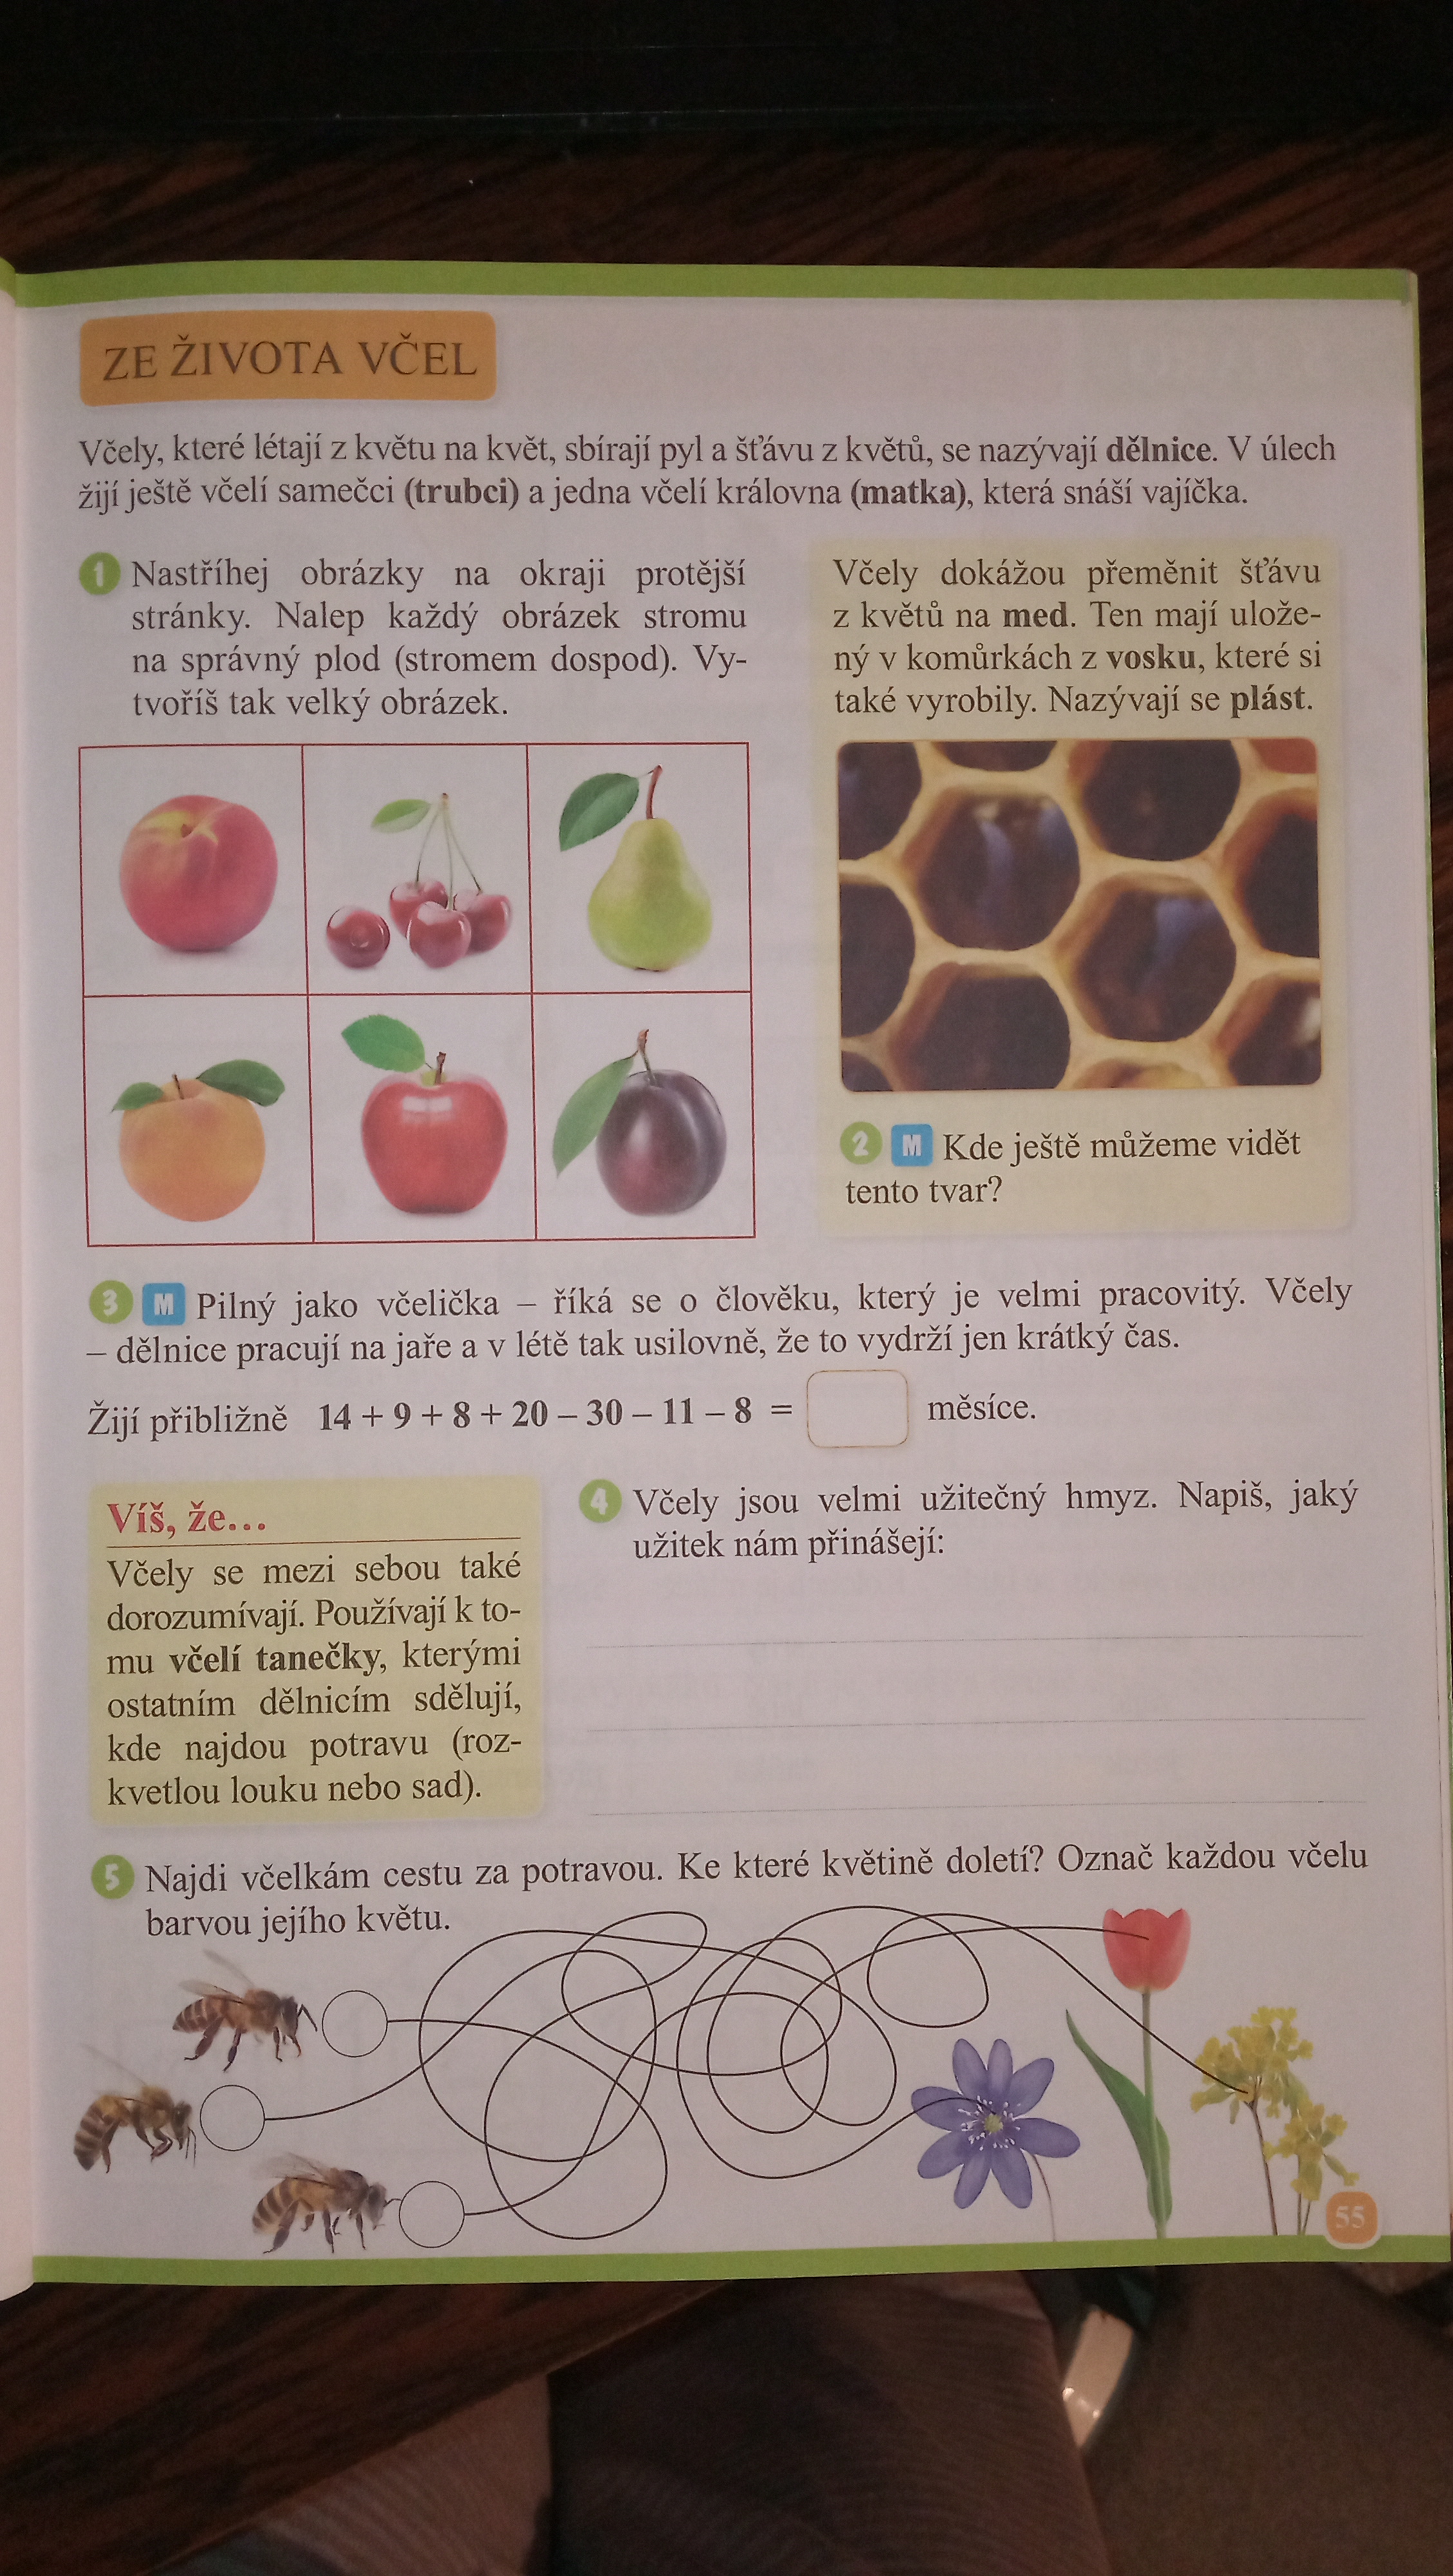 ZE ŽIVOTA VČEL
Včely, které létají z květu na květ, sbírají pyl a šťávu z květů, se nazývají dělnice. V úlech
žijí ještě včelí samečci (trubci) a jedna včelí královna (matka), která snáší vajíčka.
1 Nastříhej obrázky na okraji protější
stránky. Nalep každý obrázek stromu
na správný plod (stromem dospod). Vy-
tvoříš tak velký obrázek.
Včely dokážou přeměnit šťávu
z květů na med. Ten mají ulože-
ný v komůrkách z vosku, které si
také vyrobily. Nazývají se plást.
2 M Kde ještě můžeme vidět
tento tvar?
3 M Pilný jako včelička – říká se o člověku, který je velmi pracovitý. Včely
– dělnice pracují na jaře a v létě tak usilovně, že to vydrží jen krátký čas.
Žijí přibližně 14 + 9 + 8 + 20 – 30 – 11 – 8 = měsíce.
Víš, že...
Včely se mezi sebou také
dorozumívají. Používají k to-
mu včelí tanečky, kterými
ostatním dělnicím sdělují,
kde najdou potravu (roz-
kvetlou louku nebo sad).
4 Včely jsou velmi užitečný hmyz. Napiš, jaký
užitek nám přinášejí:
5 Najdi včelkám cestu za potravou. Ke které květině doletí? Označ každou včelu
barvou jejího květu.
55